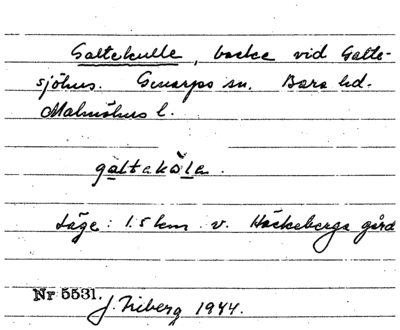 Galtekulle, backe vid Galte-
sjöhus. Genarps sn. Bara hd.
Malmöhus l.
galtakŏla.
Läge: 1.5 km v. Häckeberga gård
Nr 5531.
J. Friberg 1944.